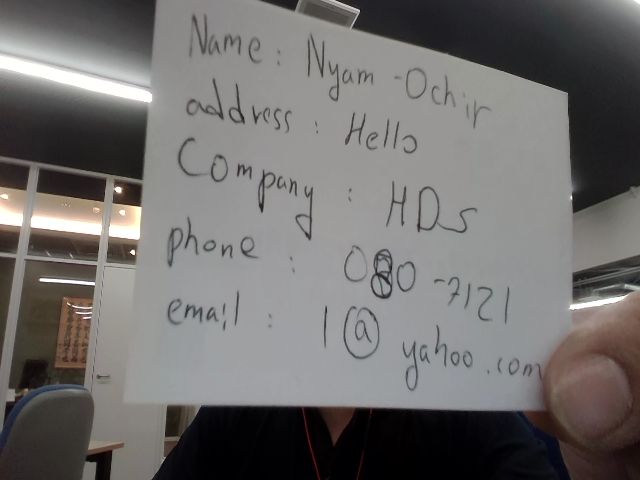 Name : Nyam - Ochir
address : Hello
Company : HDs
phone : 080 -7121
email : 1@yahoo.com